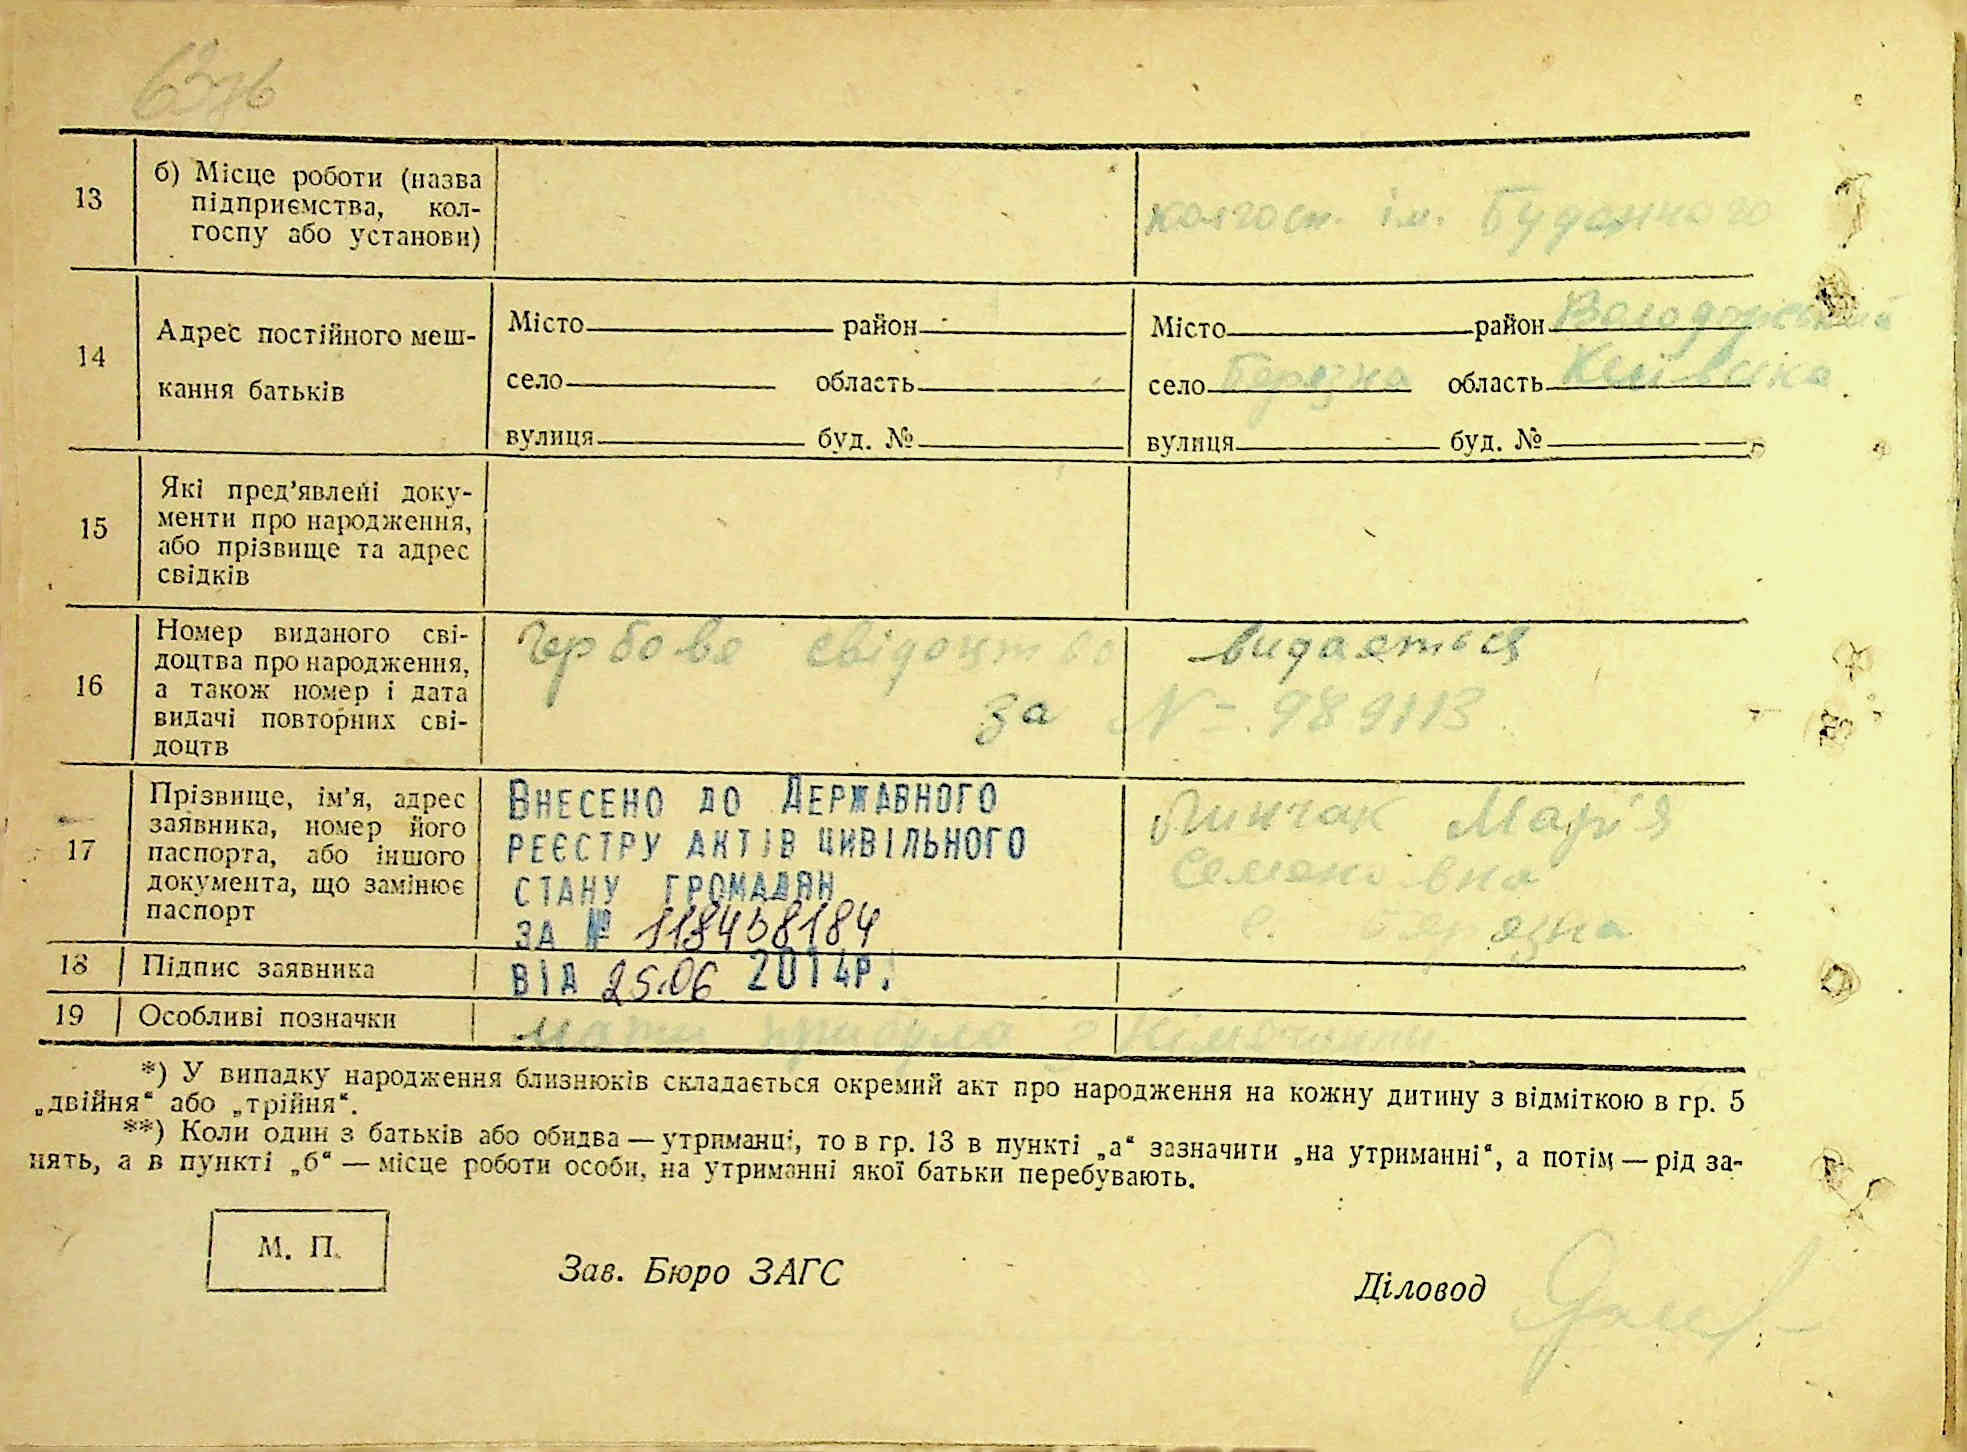 13
б) Місце роботи (назва
підприємства, кол-
госпу або установи)
колгосп. ім. Буденного
14
Адрес постійного меш-
кання батьків
Місто район
село область
вулиця буд. №
Місто район Володарський
село Березна область Київська
вулиця буд. №
15
Які пред’явлені доку-
менти про народження,
або прізвище та адрес
свідків
16
Номер виданого сві-
доцтва про народження,
а також номер і дата
видачі повторних сві-
доцтв
Гербове свідоцтво видається
за № 989113
17
Прізвище, ім’я, адрес
заявника, номер його
паспорта, або іншого
документа, що замінює
паспорт
Внесено до Державного
реєстру актів цивільного
стану громадян
за № 118458184
від 25.06 2014р.
Линчак Мар'я
Семенівна
с. Березна
18 Підпис заявника
19 Особливі позначки
мати прибула з Німеччини
*) У випадку народження близнюків складається окремий акт про народження на кожну дитину з відміткою в гр. 5
„двійня“ або „трійня“.
**) Коли один з батьків або обидва — утриманці, то в гр. 13 в пункті „а“ зазначити „на утриманні“, а потім — рід за-
нять, а в пункті „б“ — місце роботи особи, на утриманні якої батьки перебувають.
М. П.
Зав. Бюро ЗАГС
Діловод